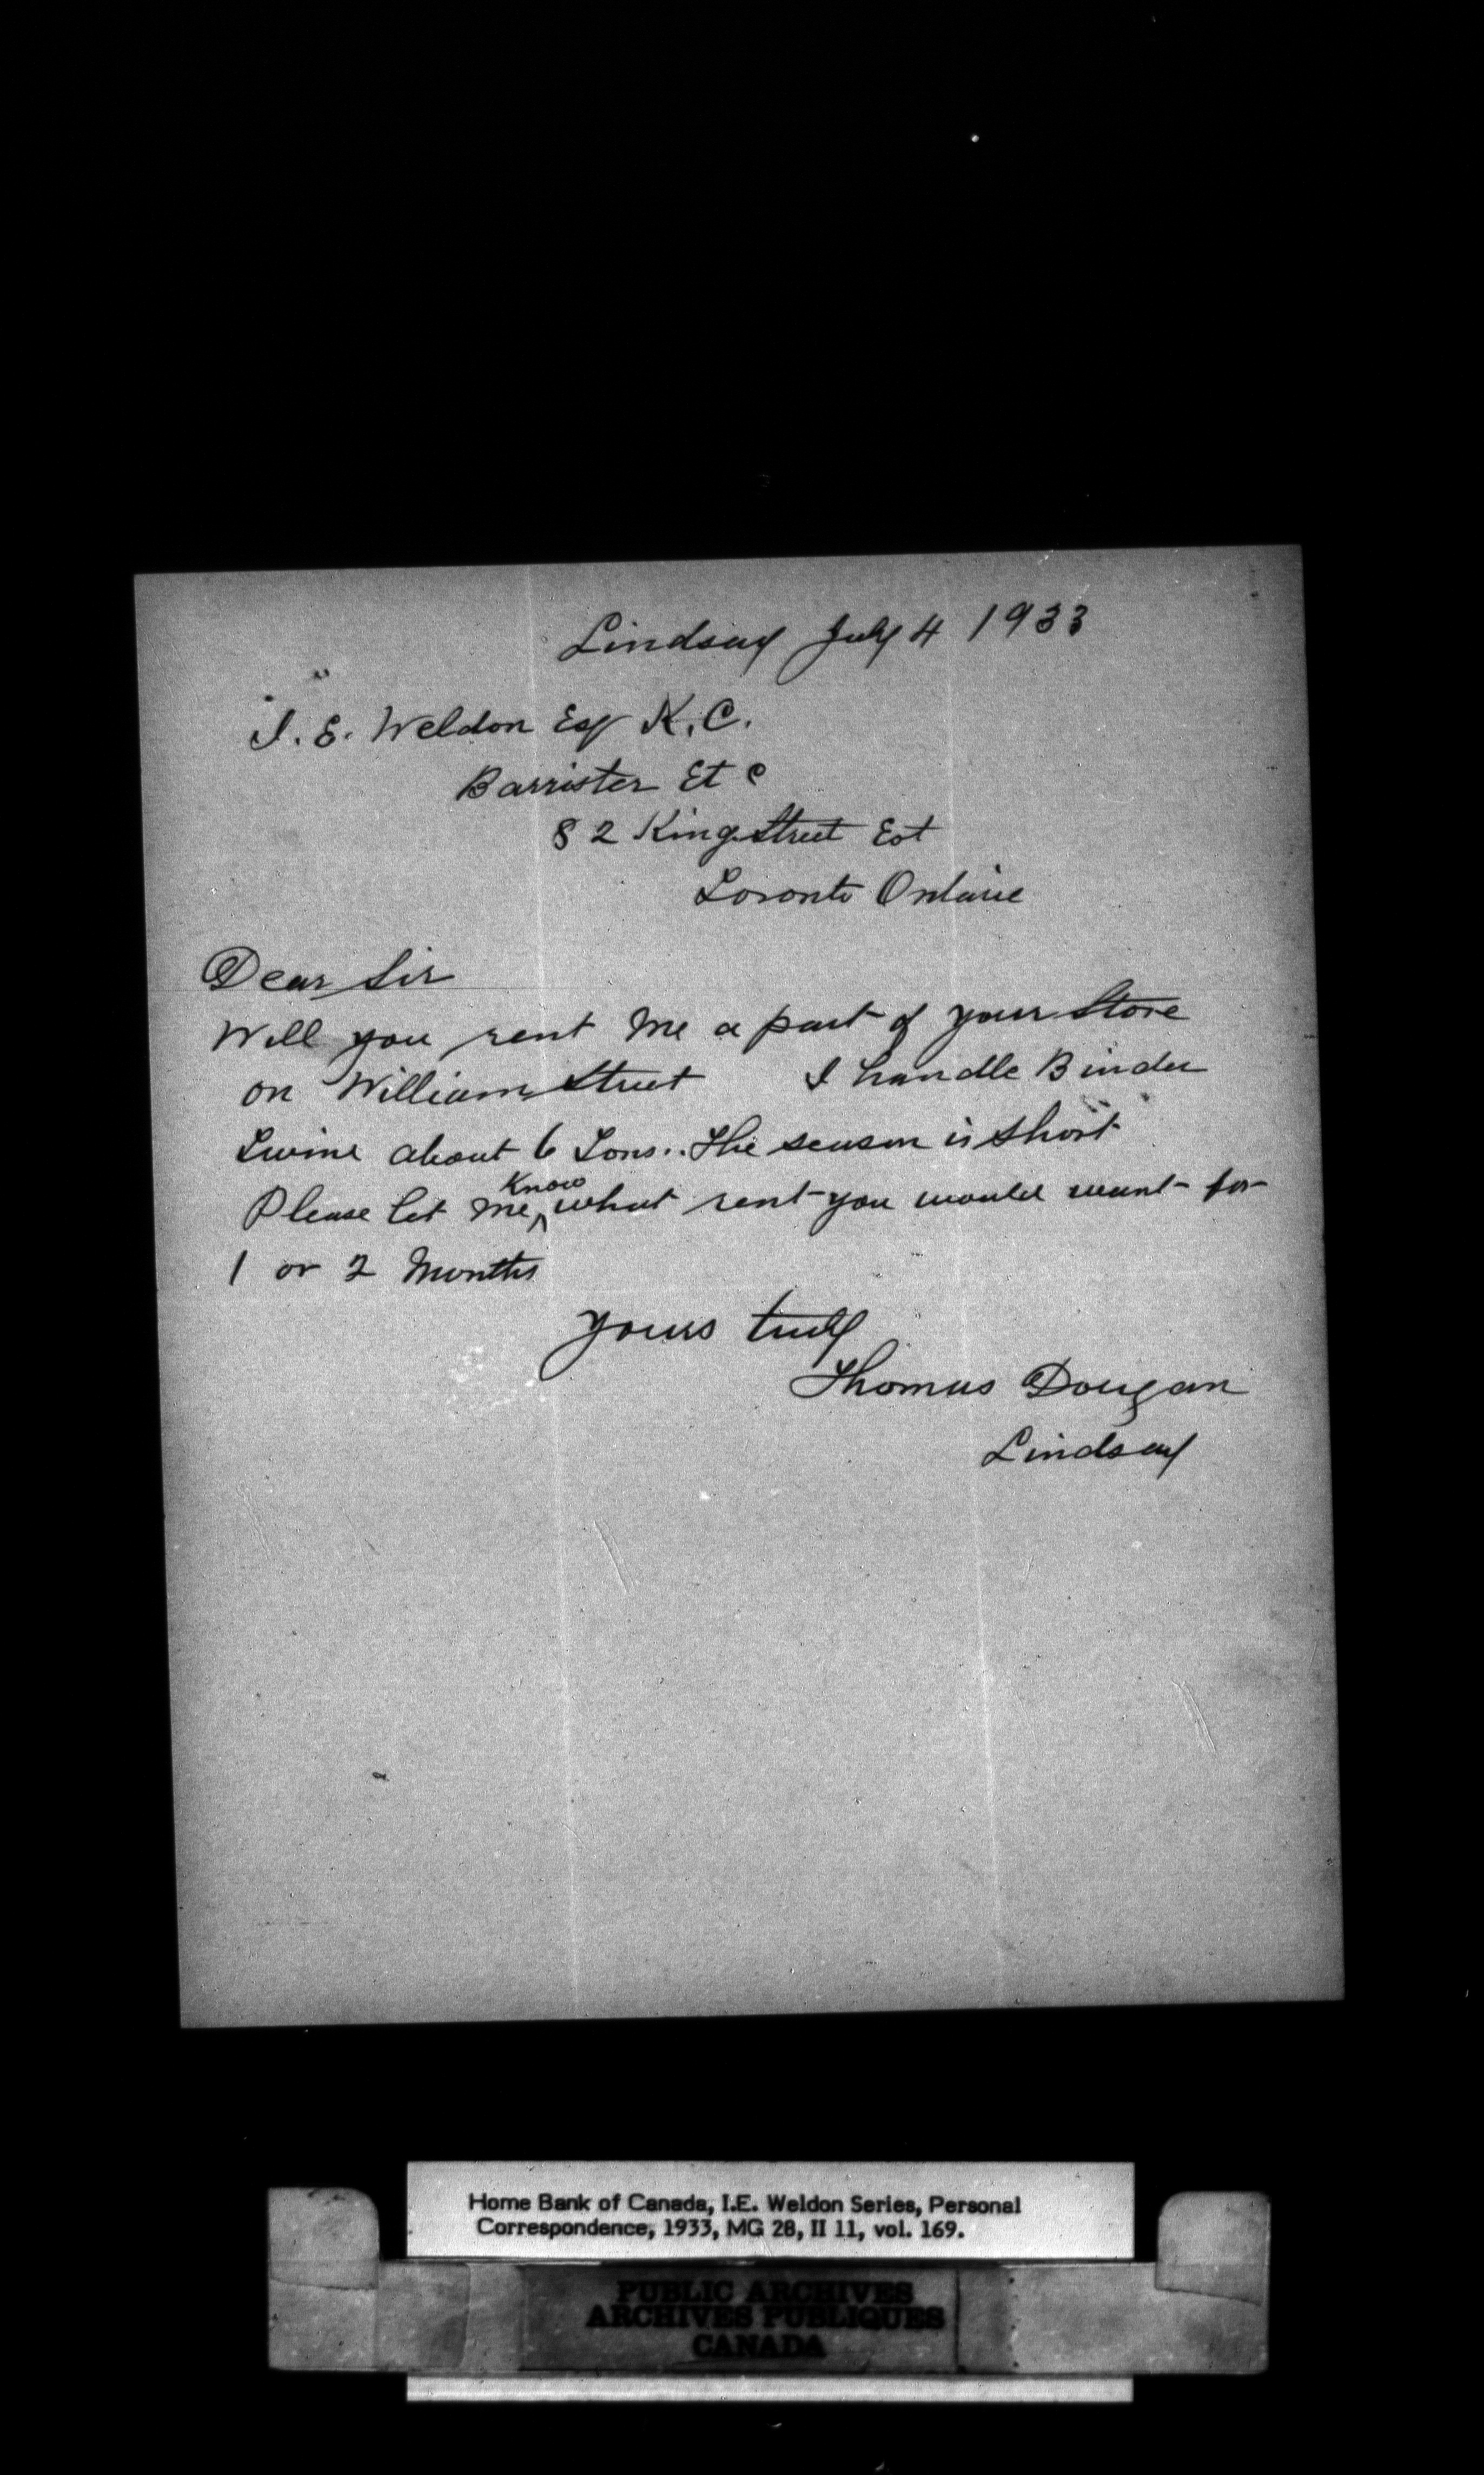 Lindsay July 4 1933
I. E. Weldon Esq K. C.
Barrister Etc
82 King Street Est
Toronto Ontario
Dear Sir
Will you rent me a part of your Store
on William Street I handle Binder
Twine about 6 Tons.. The season is short
Please let me Know what rent you would want for
1 or 2 Months
yours truly
Thomas Dougan
Lindsay
Home Bank of Canada, I.E. Weldon Series, Personal
Correspondence, 1933, MG 28, II 11, vol. 169.
PUBLIC ARCHIVES
ARCHIVES PUBLIQUES
CANADA